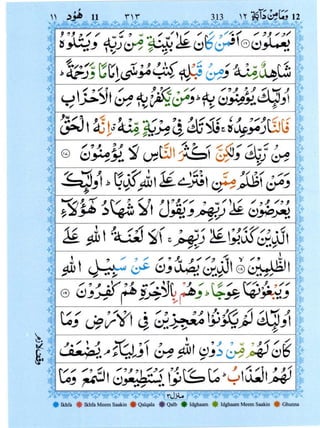 ١١ هُوْد 11 ٢١٣ 313 وَمَا مِنْ دَآبَّةٍ ١٢ 12
يَعْمَلُوْنَ ۝١٦ اَفَمَنْ كَانَ عَلٰى بَيِّنَةٍ مِّنْ رَّبِّهٖ وَيَتْلُوْهُ
شَاهِدٌ مِّنْهُ وَمِنْ قَبْلِهٖ كِتٰبُ مُوْسٰٓى اِمَامًا وَّرَحْمَةً ؕ
اُولٰٓئِكَ يُؤْمِنُوْنَ بِهٖ ؕ وَمَنْ يَّكْفُرْ بِهٖ مِنَ الْاَحْزَابِ
فَالنَّارُ مَوْعِدُهٗ ۚ فَلَا تَكُ فِىْ مِرْيَةٍ مِّنْهُ ۗ اِنَّهُ الْحَقُّ
مِنْ رَّبِّكَ وَلٰكِنَّ اَكْثَرَ النَّاسِ لَا يُؤْمِنُوْنَ ۝١٧
وَمَنْ اَظْلَمُ مِمَّنِ افْتَرٰى عَلَى اللّٰهِ كَذِبًا ؕ اُولٰٓئِكَ
يُعْرَضُوْنَ عَلٰى رَبِّهِمْ وَيَقُوْلُ الْاَشْهَادُ هٰٓؤُلَآءِ
الَّذِيْنَ كَذَبُوْا عَلٰى رَبِّهِمْ ۚ اَلَا لَعْنَةُ اللّٰهِ عَلَى
الظّٰلِمِيْنَ ۝١٨ الَّذِيْنَ يَصُدُّوْنَ عَنْ سَبِيْلِ اللّٰهِ
وَيَبْغُوْنَهَا عِوَجًا ؕ وَهُمْ بِالْاٰخِرَةِ هُمْ كٰفِرُوْنَ ۝١٩
اُولٰٓئِكَ لَمْ يَكُوْنُوْا مُعْجِزِيْنَ فِى الْاَرْضِ وَمَا
كَانَ لَهُمْ مِّنْ دُوْنِ اللّٰهِ مِنْ اَوْلِيَآءَ ۘ يُضٰعَفُ
لَهُمُ الْعَذَابُ ؕ مَا كَانُوْا يَسْتَطِيْعُوْنَ السَّمْعَ وَمَا
وقف لازم
منزل ٣
Ikhfa Ikhfa Meem Saakin Qalqala Qalb Idghaam Idghaam Meem Saakin Ghunna